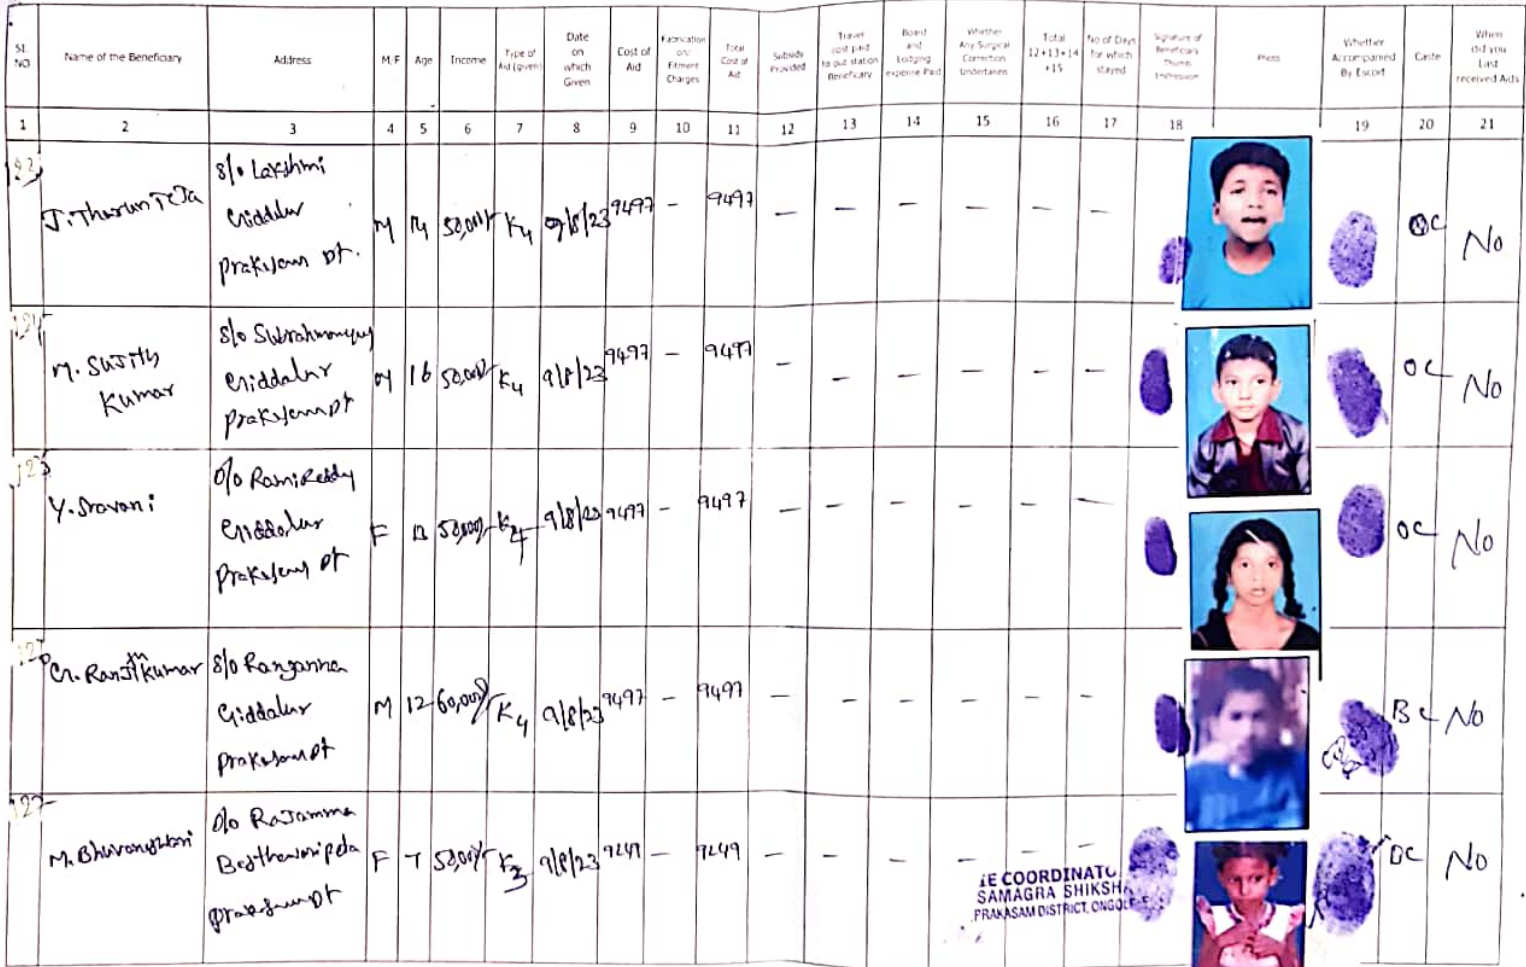 Sl. NO
Name of the Beneficiary
Address
M/F
Age
Income
Type of Aid (given)
Date on which Given
Cost of Aid
Fabrication on/ Fitment Charges
Total Cost of Aid
Subsidy Provided
Travel cost paid to out station Beneficiary
Board and Lodging expense Paid
Whether Any Surgical Correction Undertaken
Total 12+13+14+15
No of Days for which stayed
Signature of Beneficiary Thumb Impression
Photo
Whether Accompanied By Escort
Caste
When did you Last received Aids
1 2 3 4 5 6 7 8 9 10 11 12 13 14 15 16 17 18 19 20 21
J. Tharun Teja
S/o Lakshmi
Giddalur
Prakasam Dt.
M 14 50,000/- K4 9/8/23 9497 - 9497 - - - - - - OC No
M. Sujith Kumar
S/o Subrahmanyam
Giddalur
Prakasam Dt
M 16 50,000/- K4 9/8/23 9497 - 9497 - - - - - - OC No
Y. Sravani
D/o Rami Reddy
Giddalur
Prakasam Dt
F 13 50,000/- K4 9/8/23 9497 - 9497 - - - - - - OC No
Ch. Ranjith Kumar
S/o Ranganna
Giddalur
Prakasam Dt
M 12 60,000/- K4 9/8/23 9497 - 9497 - - - - - - BC No
M. Bhuvaneswari
D/o Rajamma
Prakasam Dt
F 7 50,000/- K3 9/8/23 9249 - 9249 - - - - - - No
IE COORDINATO
SAMAGRA SHIKSHA
PRAKASAM DISTRICT, ONGOLE